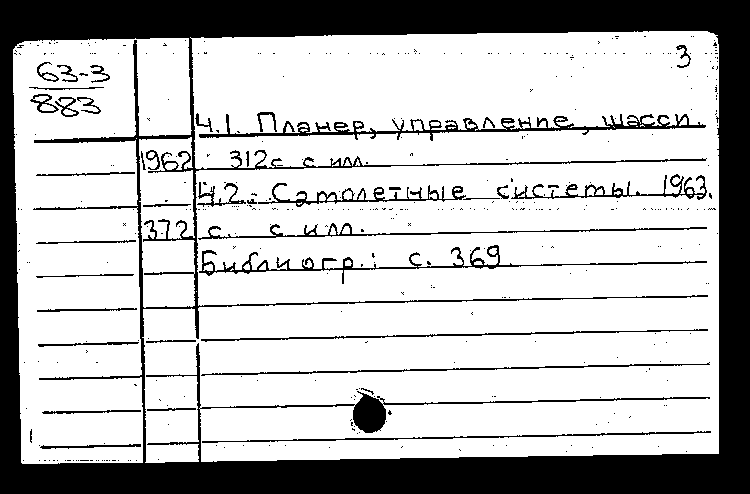 3
63-3
883
Ч.1. Планер, управление, шасси.
1962 312с с илл.
Ч.2. Самолетные системы. 1963.
372 с. с илл.
Библиогр.: с. 369.